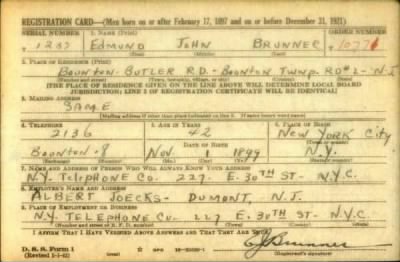 REGISTRATION CARD—(Men born on or after February 17, 1897 and on or before December 31, 1921)
SERIAL NUMBER 1. NAME (Print) ORDER NUMBER
1237 EDMUND JOHN BRUNNER 10771
(First) (Middle) (Last)
2. PLACE OF RESIDENCE (Print)
BOONTON-BUTLER RD.-BOONTON TWNP. RD#2-N.J.
(Number and street) (Town, township, village, or city) (County) (State)
[THE PLACE OF RESIDENCE GIVEN ON THE LINE ABOVE WILL DETERMINE LOCAL BOARD
JURISDICTION; LINE 2 OF REGISTRATION CERTIFICATE WILL BE IDENTICAL]
3. MAILING ADDRESS
SAME
[Mailing address if other than place indicated on line 2. If same insert word same]
4. TELEPHONE 5. AGE IN YEARS 6. PLACE OF BIRTH
2136 42 NEW YORK CITY
DATE OF BIRTH (Town or county)
BOONTON-8 NOV. 1 1899 N.Y.
(Exchange) (Number) (Mo.) (Day) (Yr.) (State or country)
7. NAME AND ADDRESS OF PERSON WHO WILL ALWAYS KNOW YOUR ADDRESS
N.Y. TELEPHONE CO. 227 E. 30TH ST. N.Y.C.
8. EMPLOYER'S NAME AND ADDRESS
ALBERT JOECKS- DUMONT, N.J.
9. PLACE OF EMPLOYMENT OR BUSINESS
N.Y. TELEPHONE CO. 227 E. 30TH ST. N.Y.C.
(Number and street or R. F. D. number) (Town) (County) (State)
I AFFIRM THAT I HAVE VERIFIED ABOVE ANSWERS AND THAT THEY ARE TRUE.
D. S. S. Form 1
(Revised 1-1-42) (over) GPO 16—21630-1 E J Brunner
(Registrant's signature)